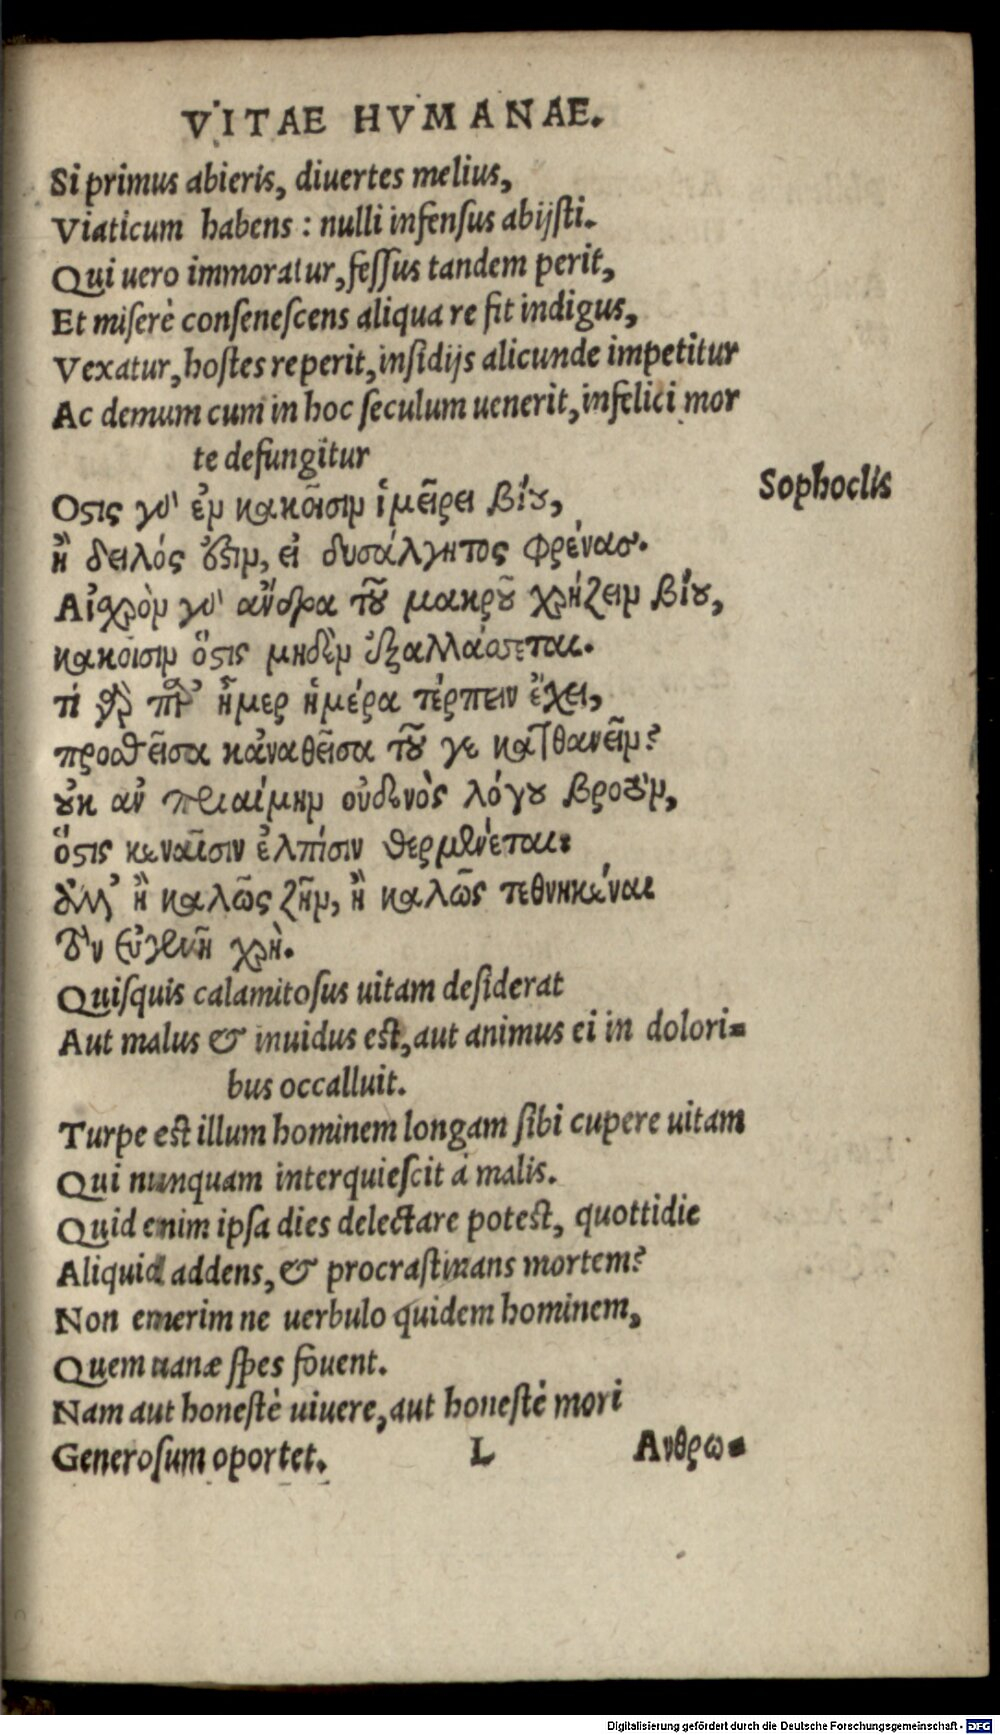 VITAE HVMANAE.
Si primus abieris, diuertes melius,
Viaticum habens : nulli infensus abijsti.
Qui uero immoratur, fessus tandem perit,
Et miserè consenescens aliqua re fit indigus,
Vexatur, hostes reperit, insidijs alicunde impetitur
Ac demum cum in hoc seculum uenerit, infelici mor
te defungitur
Sophoclis
Οςις γδ' ἐν κακοῖσιν ἱμείρει βίου,
ἢ δειλός ὅςιν, εἰ δυσάλγητος φρένας.
Αἰχρὸν γδ' ἄνδρα τοῦ μακροῦ χρήζειν βίου,
κακοισιν ὅςις μηδὲν ἐξαλλάσσεται.
τί γὰρ παρ' ἦμερ ἡμέρα τέρπειν ἔχει,
προσθεῖσα κἀναθεῖσα τοῦ γε κατθανεῖν?
οὐκ ἂν πριαίμην οὐδενὸς λόγου βροτὸν,
ὅςις κεναῖσιν ἐλπίσιν θερμαίνεται:
ἀλλ' ἢ καλῶς ζῆν, ἢ καλῶς τεθνηκέναι
τὸν εὐγενῆ χρὴ.
Quisquis calamitosus uitam desiderat
Aut malus & inuidus est, aut animus ei in dolori=
bus occalluit.
Turpe est illum hominem longam sibi cupere uitam
Qui nunquam interquiescit à malis.
Quid enim ipsa dies delectare potest, quottidie
Aliquid addens, & procrastinans mortem?
Non emerim ne uerbulo quidem hominem,
Quem uanæ spes fouent.
Nam aut honestè uiuere, aut honestè mori
Generosum oportet.
L
Ανθρω=
Digitalisierung gefördert durch die Deutsche Forschungsgemeinschaft - DFG